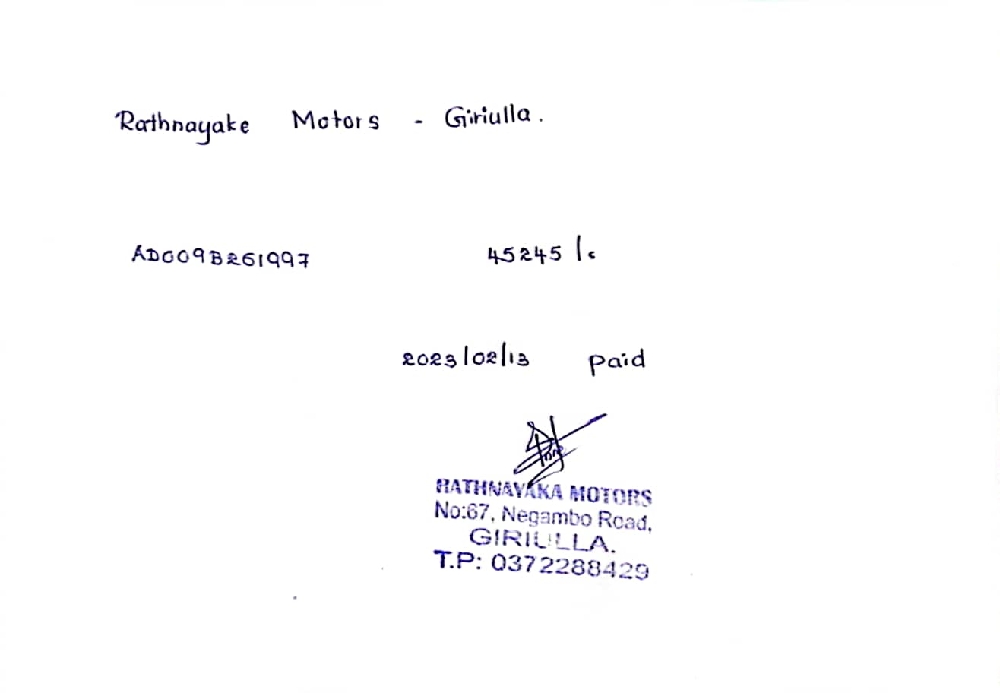 Rathnayake Motors - Giriulla.
AD009B261997 45245/c
2023/02/13 paid
RATHNAYAKA MOTORS
No:67, Negambo Road,
GIRIULLA.
T.P: 0372288429